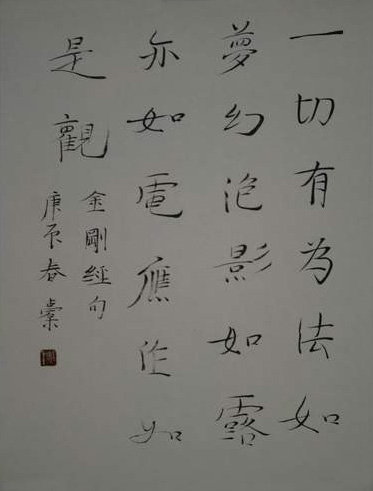 一切有為法如
夢幻泡影如露
亦如電應作如
是觀
金剛經句
庚辰春